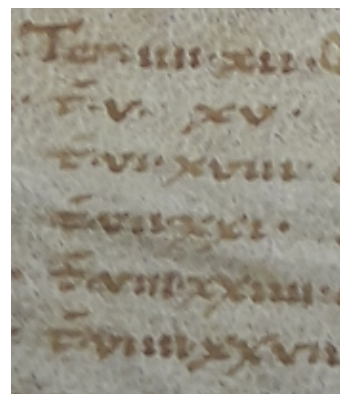 Ter·iiii·xii·
t̄·v· xv·
t̄·vi·xviii·
t̄·vii·xxi·
t̄·viii·xxiiii·
t̄·viiii·xxvii